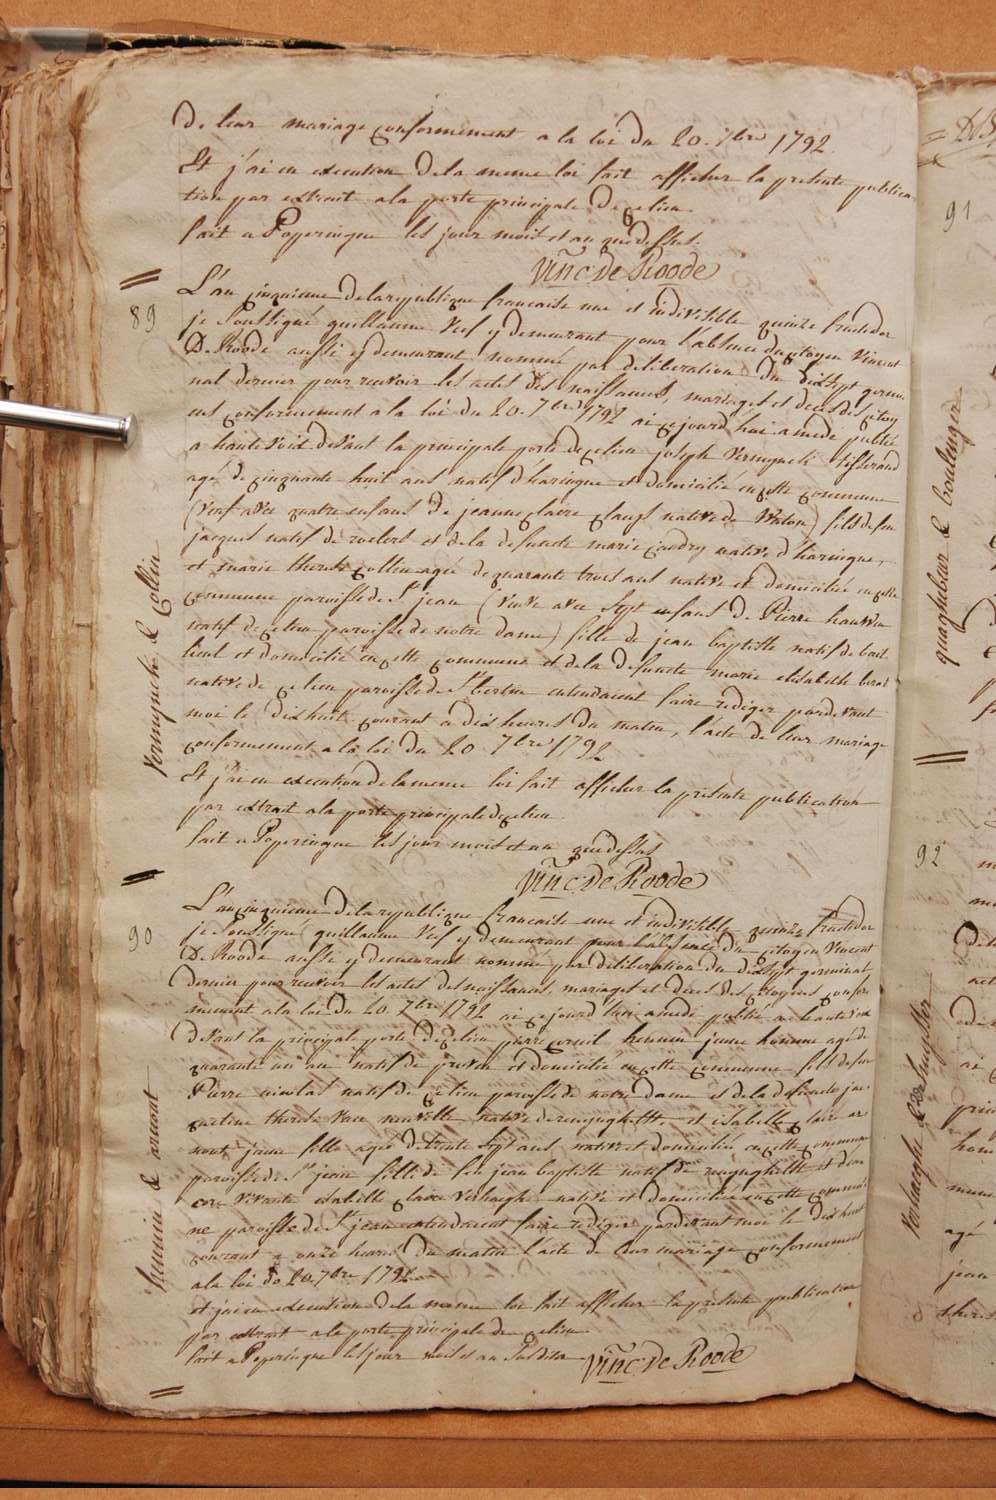 de leur mariage conformement a la loi du 20. 7bre 1792.
Et j'ai en execution de la meme loi fait afficher la presente publica-
tion par extrait a la porte principale de ce lieu.
fait a Poperingue les jour mois et an que dessus.
Vinc De Roode
89
L'an cinquieme de la republique francaise une et indivisible quinze fructidor
je soussigné guillaume Vesf y demeurant pour l'absence du citoyen Vincent
De Roode aussi y demeurant nommé par deliberation du dixsept germi-
nal dernier pour recevoir les actes des naissances, mariages et deces des citoy
ens conformement a la loi du 20. 7bre 1792 ai cejourd'hui a midi publié
a haute voix devant la principale porte de ce lieu joseph Vermynck tisserand
agé de cinquante huit ans natif d'haringue et domicilié en cette commune
(veuf avec quatre enfans de jeanne claire clays native de Watou) fils de feu
jacques natif de roelers et de la defuncte marie coudry native d'haringue,
et marie therese collin agée de quarante trois ans native et domiciliée en cette
commune paroisse de St jean (veuve avec sept enfans de Pierre
natif de ce lieu paroisse de notre dame) fille de jean baptiste natif de bail
lieul et domicilié en cette commune et de la defuncte marie elisabeth
native de ce lieu paroisse de St bertin entendaient faire rediger pardevant
moi le dixhuit courant a dix heures du matin, l'acte de leur mariage
conformement a la loi du 20. 7bre 1792
Et j'ai en execution de la meme loi fait afficher la presente publication
par extrait a la porte principale de ce lieu
fait a Poperingue les jour mois et an que dessus
Vinc De Roode
Vermynck & Collin
90
L'an cinquieme de la republique francaise une et indivisible quinze fructidor
je soussigné guillaume Vesf y demeurant pour l'absence du citoyen Vincent
De Roode aussi y demeurant nommé par deliberation du dixsept germinal
dernier pour recevoir les actes des naissances, mariages et deces des citoyens confor
mement a la loi du 20 7bre 1792 ai cejourd'hui a midi publié a haute voix
devant la principale porte de ce lieu pierre hennin jeune homme agé de
quarante un an natif de proven et domicilié en cette commune fils de feu
Pierre nicolas natif de ce lieu paroisse de notre dame et de la defuncte jac-
queline therese native de reninghelst, et isabelle claire ar
nout jeune fille agée de trente sept ans, native et domiciliée en cette commune
paroisse de St jean fille de feu jean baptiste natif de reninghelst et d'en
core vivante isabelle claire Verhaeghe native et domiciliée en cette commu-
ne paroisse de St jean entendaient faire rediger pardevant moi le dixhuit
courant a onze heures du matin l'acte de leur mariage conformement
a la loi du 20. 7bre 1792
et j'ai en execution de la meme loi fait afficher la presente publication
par extrait a la porte principale de ce lieu
fait a Poperingue les jour mois et an susdits
Vinc De Roode
hennin & arnout
91
quaghebeur & Coulenger
92
Verhaeghe & De huysser